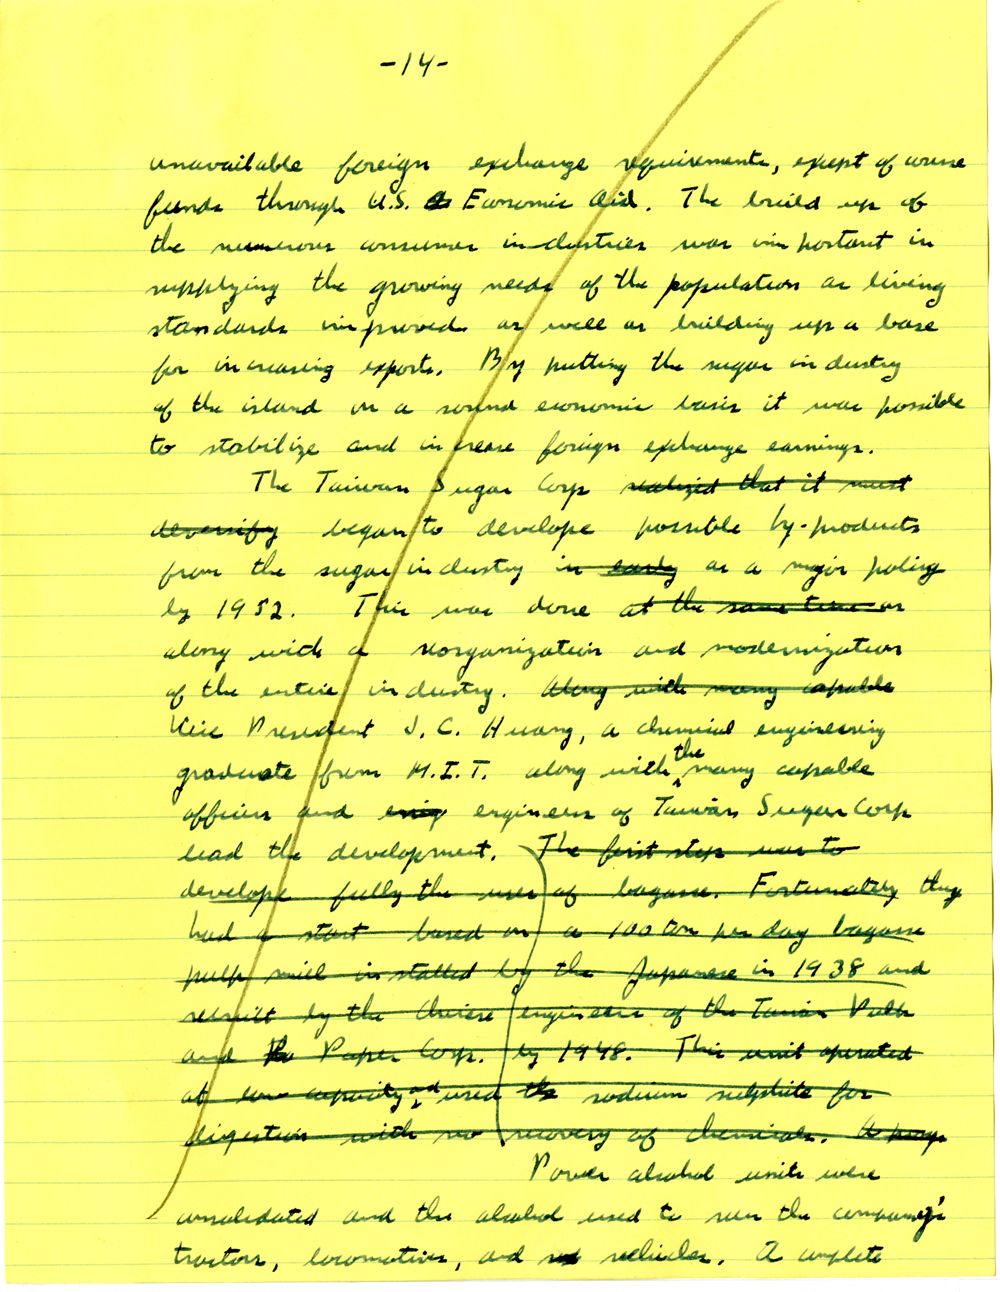 -14-
unavailable foreign exchange requirements, except of course
funds through U.S. Economic Aid. The build up of
the numerous consumer industries was important in
supplying the growing needs of the population as living
standards improved as well as building up a base
for increasing exports. By putting the sugar industry
of the island on a sound economic basis it was possible
to stabilize and increase foreign exchange earnings.
The Taiwan Sugar Corp realized that it must
deversify began to develope possible by-products
from the sugar industry in early as a major policy
by 1952. This was done at the same time as
along with a reorganization and modernization
of the entire industry. Along with many capable
Vice President J. C. Huang, a chemical engineering
graduate from M.I.T. along with the many capable
officers and engineers of Taiwan Sugar Corp
lead the development. The first step was to
develope fully the uses of bagasse. Fortunately they
had a start based on a 100 ton per day bagasse
pulp mill installed by the Japanese in 1938 and
rebuilt by the Chinese engineers of the Taiwan Pulp
and Paper Corp. by 1948. This unit operated
at low capacity and used the sodium sulphite for
digestion with no recovery of chemicals.
Power alcohol units were
consolidated and the alcohol used to run the company's
tractors, locomotives, and vehicles. A complete